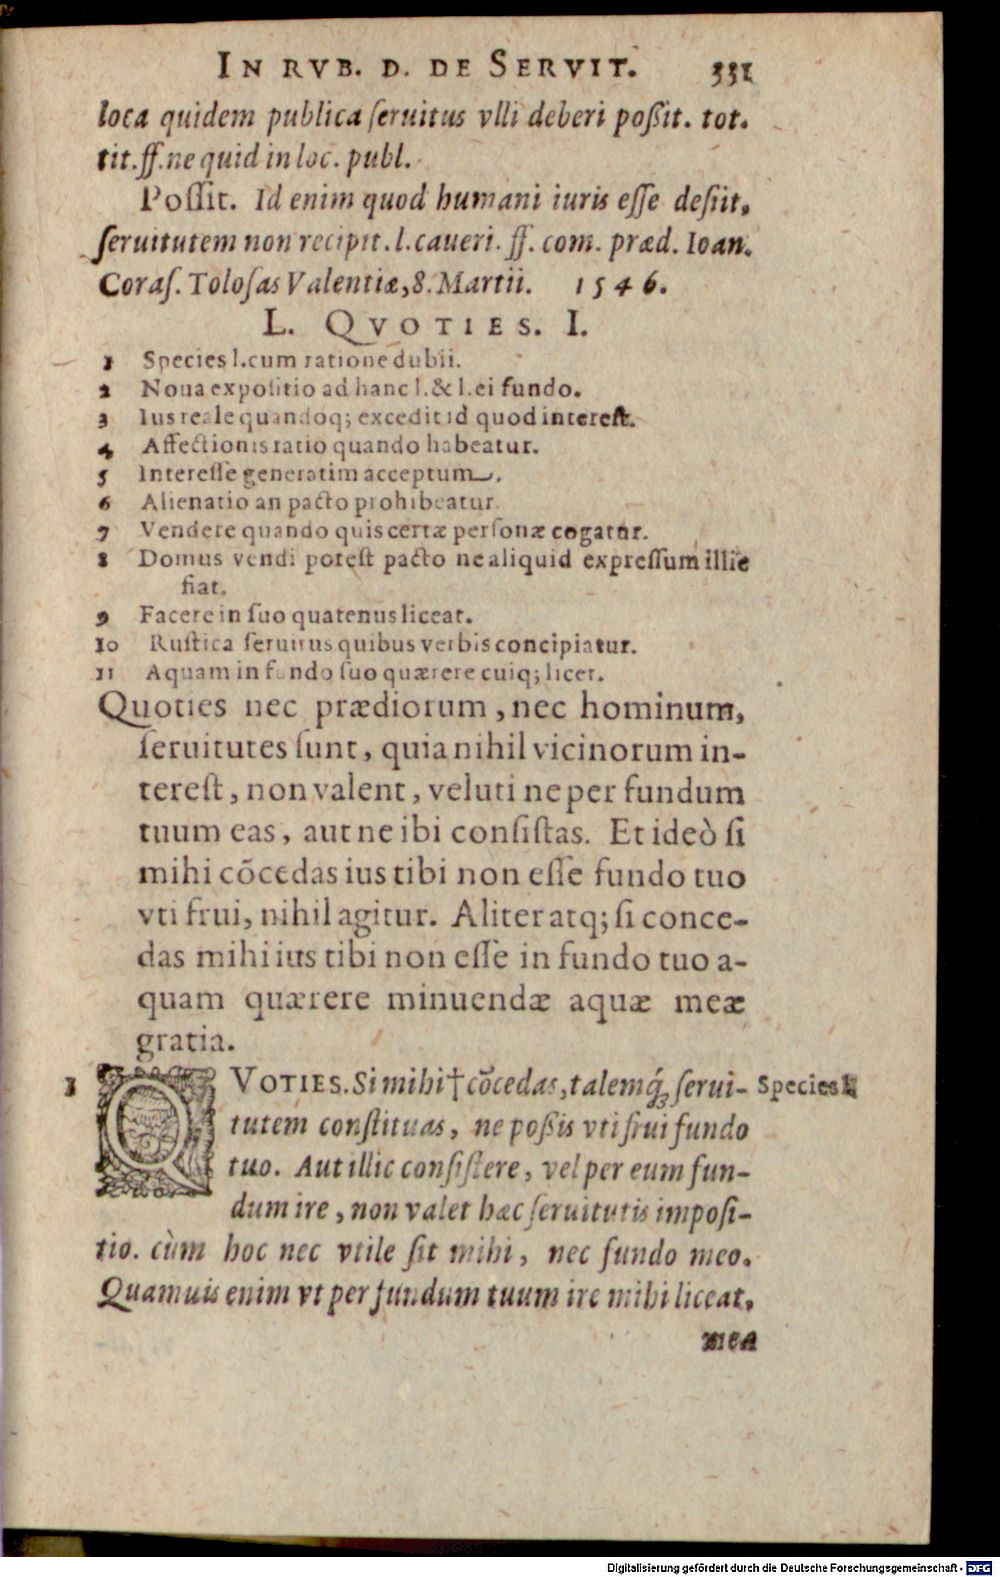 IN RVB. D. DE SERVIT. 331
loca quidem publica ſeruitus vlli deberi poßit. tot.
tit. ff. ne quid in loc. publ.
Poſſit. Id enim quod humani iuris eſſe deſiit,
ſeruitutem non recipit. l. caueri. ff. com. præd. Ioan.
Coraſ. Toloſas Valentiæ, 8. Martii. 1546.
L. QVOTIES. I.
1 Species l. cum ratione dubii.
2 Noua expoſitio ad hanc l. & l. ei fundo.
3 Ius reale quandoq; excedit id quod intereſt.
4 Affectionis ratio quando habeatur.
5 Intereſſe generatim acceptum.
6 Alienatio an pacto prohibeatur.
7 Vendere quando quis certæ perſonæ cogatur.
8 Domus vendi poteſt pacto ne aliquid expreſſum illic
fiat.
9 Facere in ſuo quatenus liceat.
10 Ruſtica ſeruitus quibus verbis concipiatur.
11 Aquam in fundo ſuo quærere cuiq; licet.
Quoties nec prædiorum, nec hominum,
ſeruitutes ſunt, quia nihil vicinorum in-
tereſt, non valent, veluti ne per fundum
tuum eas, aut ne ibi conſiſtas. Et ideò ſi
mihi cõcedas ius tibi non eſſe fundo tuo
vti frui, nihil agitur. Aliter atq; ſi conce-
das mihi ius tibi non eſſe in fundo tuo a-
quam quærere minuendæ aquæ meæ
gratia.
1 QVOTIES. Si mihi † cõcedas, talemq́; ſerui- Species l.
tutem conſtituas, ne poßis vti frui fundo
tuo. Aut illic conſiſtere, vel per eum fun-
dum ire, non valet hæc ſeruitutis impoſi-
tio. cùm hoc nec vtile ſit mihi, nec fundo meo.
Quamuis enim vt per fundum tuum ire mihi liceat,
mea
Digitalisierung gefördert durch die Deutsche Forschungsgemeinschaft - DFG